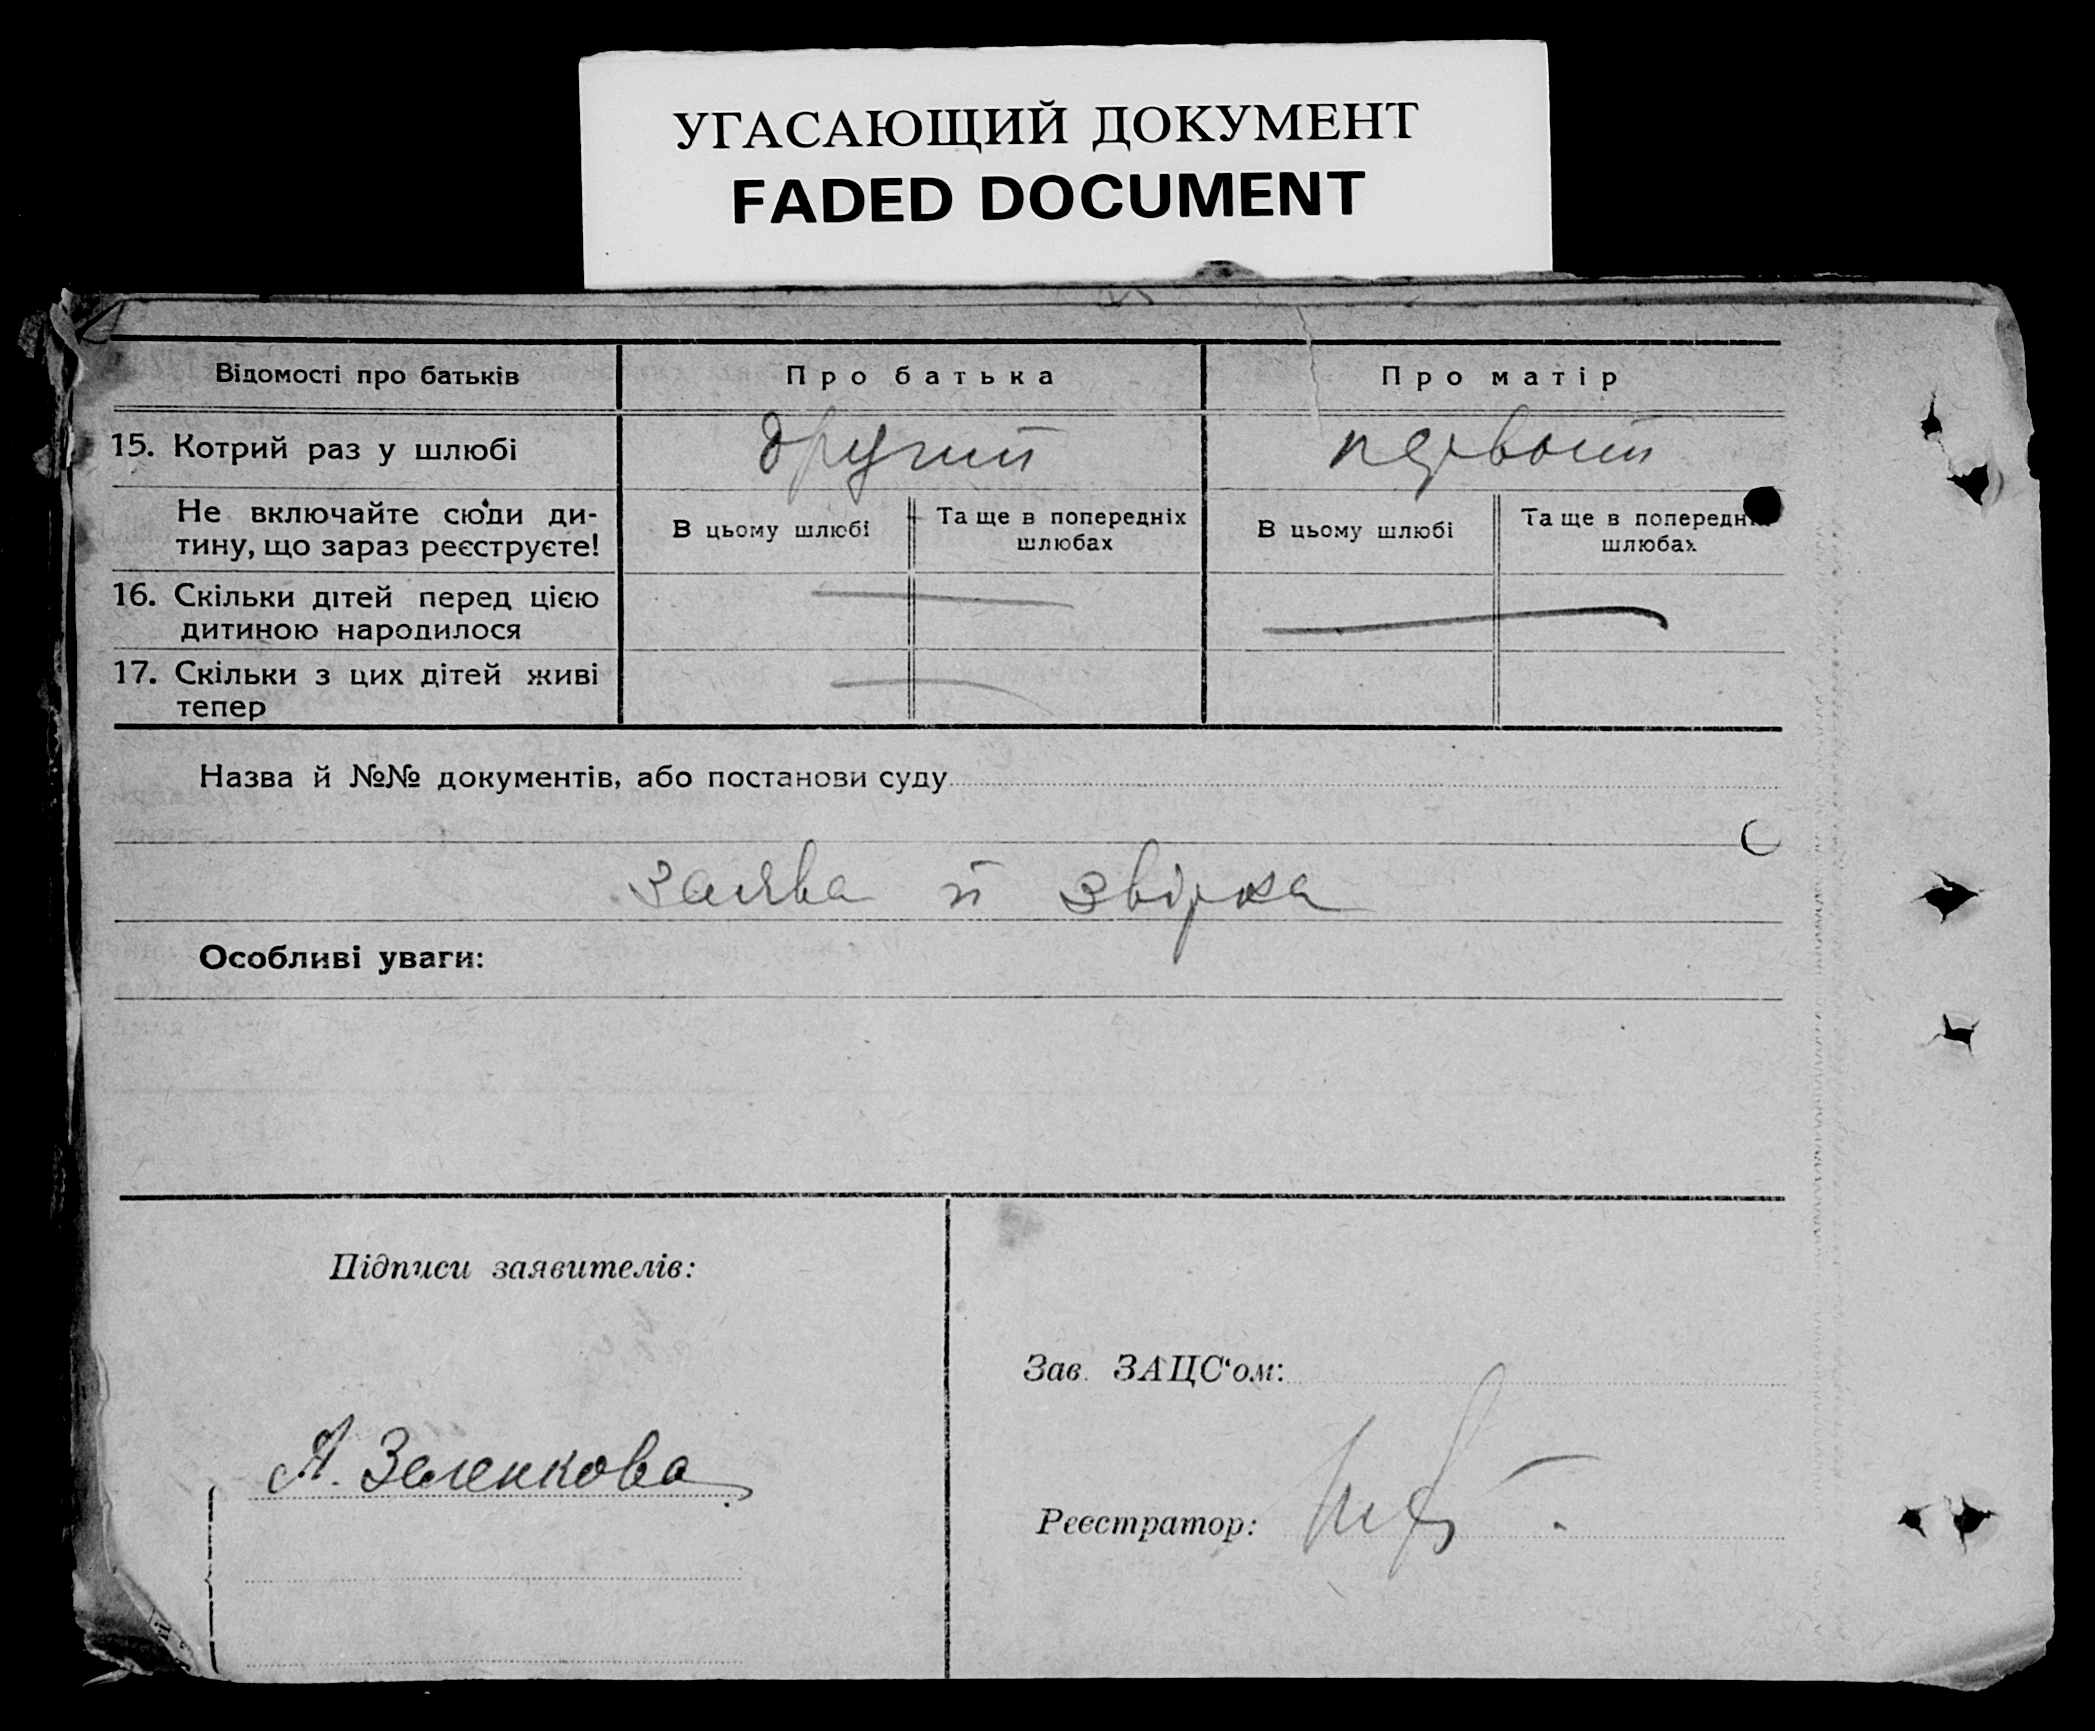 УГАСАЮЩИЙ ДОКУМЕНТ
FADED DOCUMENT
Відомості про батьків
Про батька
Про матір
15. Котрий раз у шлюбі
другий
первый
Не включайте сюди ди-
тину, що зараз реєструєте!
В цьому шлюбі
Та ще в попередніх
шлюбах
В цьому шлюбі
Та ще в попередніх
шлюбах
16. Скільки дітей перед цією
дитиною народилося
17. Скільки з цих дітей живі
тепер
Назва й №№ документів, або постанови суду
заява й звірка
Особливі уваги:
Підписи заявителів:
Зав. ЗАЦС‘ом:
А. Зеленкова
Реєстратор: